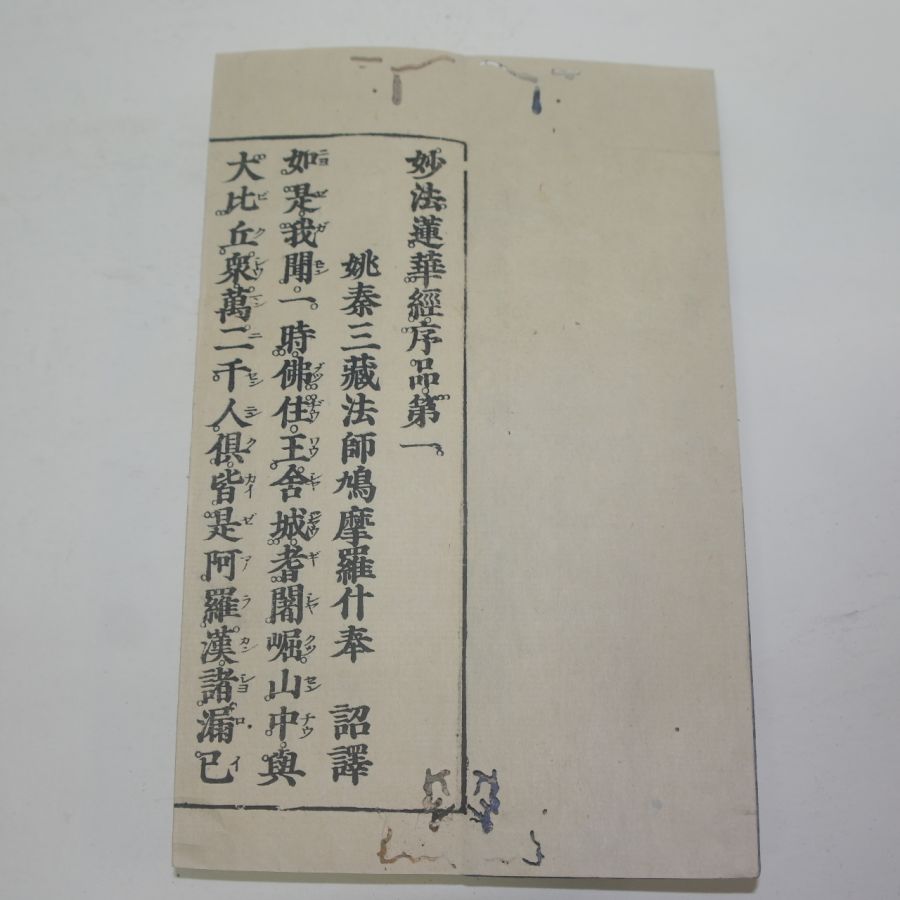 妙法蓮華經序品第一
姚秦三藏法師鳩摩羅什奉　詔譯
如是我聞一時佛住王舍城耆闍崛山中與
大比丘衆萬二千人俱皆是阿羅漢諸漏已